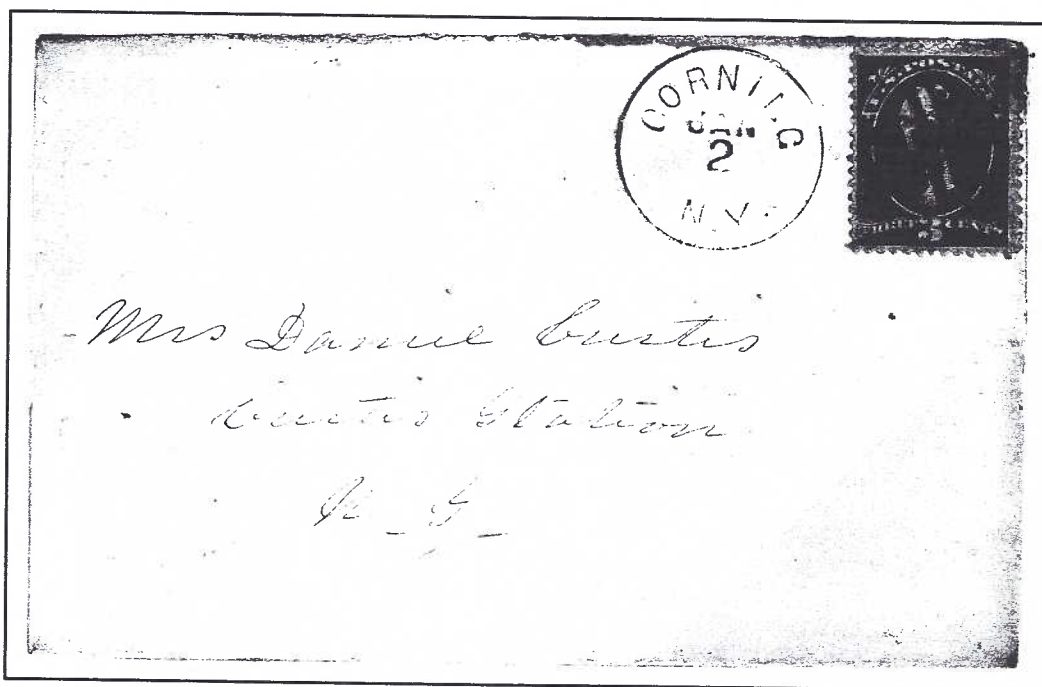 CORNING
JAN
2
N.Y.
U.S. POSTAGE
THREE CENTS
3
Mrs Daniel Curtis
Curtis Station
N - Y -